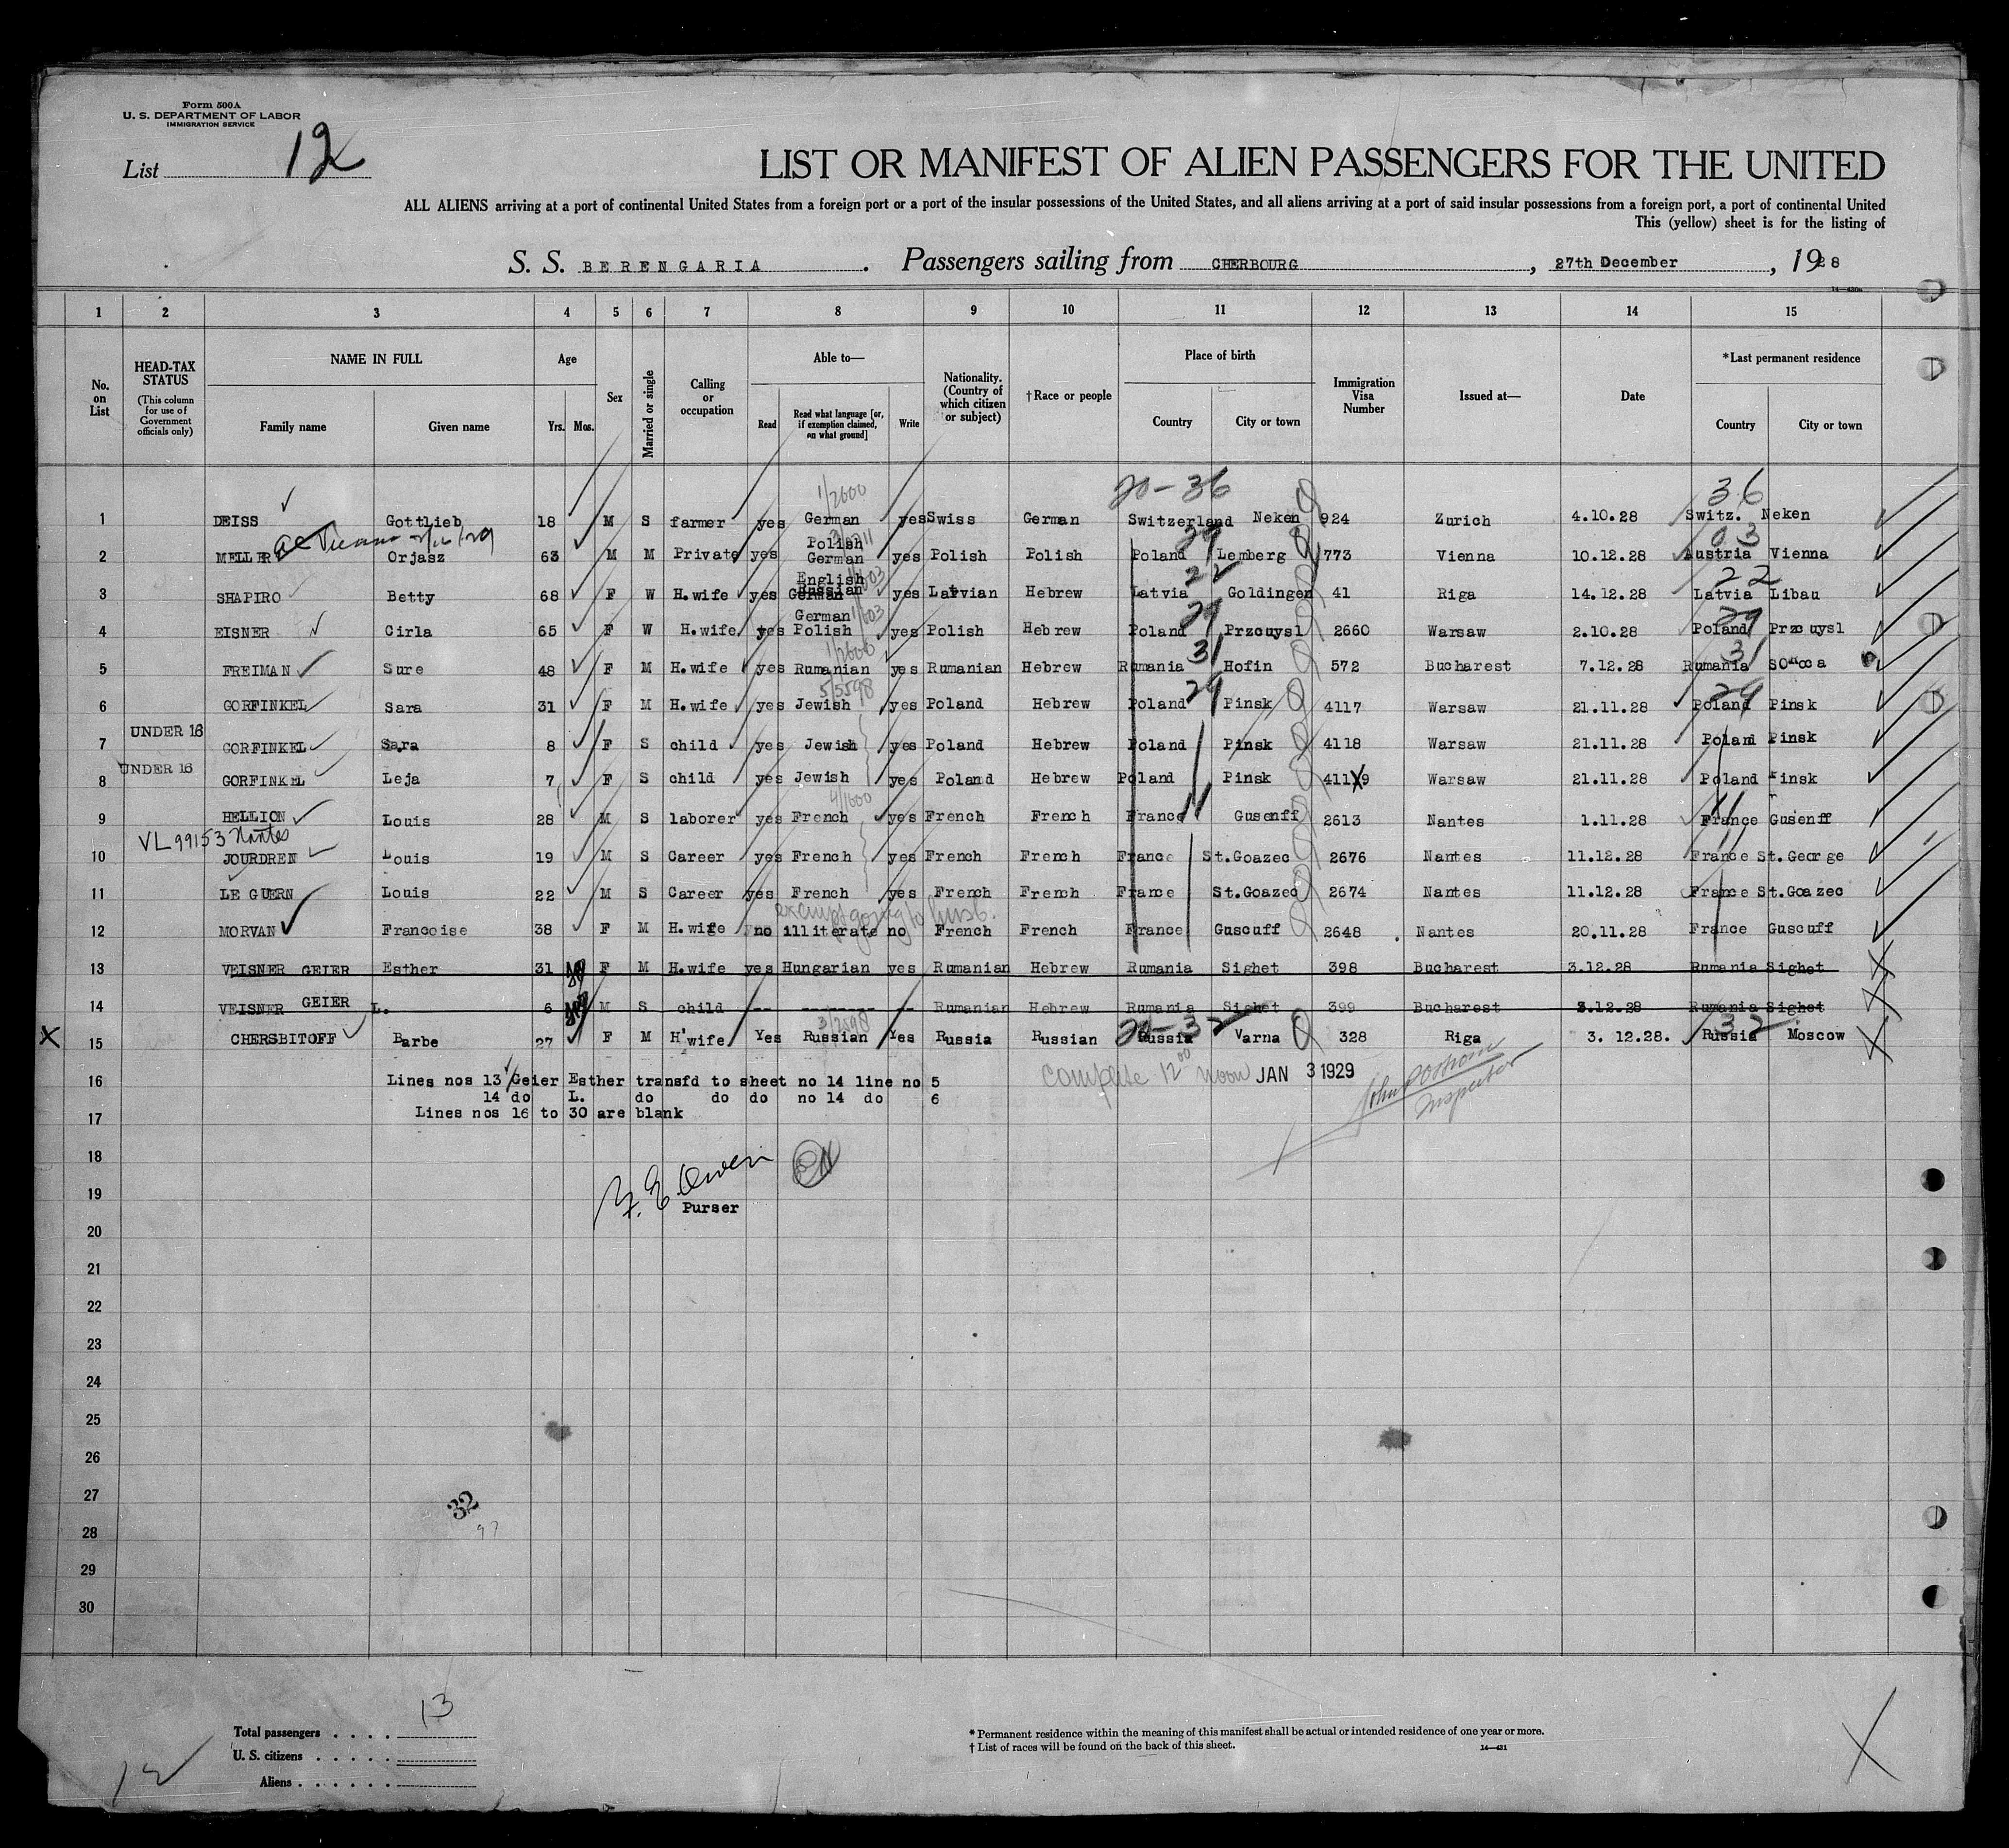 Form 500A
U. S. DEPARTMENT OF LABOR
IMMIGRATION SERVICE
List 12
LIST OR MANIFEST OF ALIEN PASSENGERS FOR THE UNITED
ALL ALIENS arriving at a port of continental United States from a foreign port or a port of the insular possessions of the United States, and all aliens arriving at a port of said insular possessions from a foreign port, a port of continental United
This (yellow) sheet is for the listing of
S. S. BERENGARIA. Passengers sailing from CHERBOURG, 27th December, 1928
14—430a
1 2 3 4 5 6 7 8 9 10 11 12 13 14 15
No. on List
HEAD-TAX STATUS
(This column for use of Government officials only)
NAME IN FULL
Family name Given name
Age
Yrs. Mos.
Sex
Married or single
Calling or occupation
Able to—
Read Read what language [or, if exemption claimed, on what ground] Write
Nationality. (Country of which citizen or subject)
†Race or people
Place of birth
Country City or town
Immigration Visa Number
Issued at—
Date
*Last permanent residence
Country City or town
1/2600 20-36 36
1 DEISS Gottlieb 18 M S farmer yes German yes Swiss German Switzerland Neken 924 Zurich 4.10.28 Switz. Neken
29 03
2 MELLER Orjasz 63 M M Private yes Polish German yes Polish Polish Poland Lemberg 773 Vienna 10.12.28 Austria Vienna
22 22
3 SHAPIRO Betty 68 F W H.wife yes English Russian German yes Latvian Hebrew Latvia Goldingen 41 Riga 14.12.28 Latvia Libau
29 29
4 EISNER Cirla 65 F W H.wife yes German Polish yes Polish Hebrew Poland Przcuysl 2660 Warsaw 2.10.28 Poland Przcuysl
1/2600 31 31
5 FREIMAN Sure 48 F M H.wife yes Rumanian yes Rumanian Hebrew Rumania Hofin 572 Bucharest 7.12.28 Rumania Soroca
5/5598 29 29
6 GORFINKEL Sara 31 F M H.wife yes Jewish yes Poland Hebrew Poland Pinsk 4117 Warsaw 21.11.28 Poland Pinsk
UNDER 16
7 GORFINKEL Sara 8 F S child yes Jewish yes Poland Hebrew Poland Pinsk 4118 Warsaw 21.11.28 Poland Pinsk
UNDER 16
8 GORFINKEL Leja 7 F S child yes Jewish yes Poland Hebrew Poland Pinsk 411X9 Warsaw 21.11.28 Poland Pinsk
4/1600 11 11
9 HELLION Louis 28 M S laborer yes French yes French French France Gusenff 2613 Nantes 1.11.28 France Gusenff
VL 99153 Nantes
10 JOURDREN Louis 19 M S Career yes French yes French French France St.Goazec 2676 Nantes 11.12.28 France St.George
11 LE GUERN Louis 22 M S Career yes French yes French French France St.Goazec 2674 Nantes 11.12.28 France St.Goazec
exempt going to husb.
12 MORVAN Francoise 38 F M H.wife no illiterate no French French France Guscuff 2648 Nantes 20.11.28 France Guscuff
13 VEISNER GEIER Esther 31 F M H.wife yes Hungarian yes Rumanian Hebrew Rumania Sighet 398 Bucharest 3.12.28 Rumania Sighet
14 VEISNER GEIER L. 6 M S child -- -------- -- Rumanian Hebrew Rumania Sighet 399 Bucharest 3.12.28 Rumania Sighet
3/2598 20-32 32
X 15 CHERSBITOFF Barbe 27 F M H'wife Yes Russian Yes Russia Russian Russia Varna 328 Riga 3. 12.28. Russia Moscow
16 Lines nos 13 Geier Esther transfd to sheet no 14 line no 5
14 do L. do do do no 14 do 6
17 Lines nos 16 to 30 are blank
12 00 noon JAN 3 1929
Inspector
18
19
Owen
Purser
20
21
22
23
24
25
26
27
32
97
28
29
30
Total passengers . . . . 13
U. S. citizens . . . . .
Aliens . . . . . .
12
* Permanent residence within the meaning of this manifest shall be actual or intended residence of one year or more.
† List of races will be found on the back of this sheet.
14—431